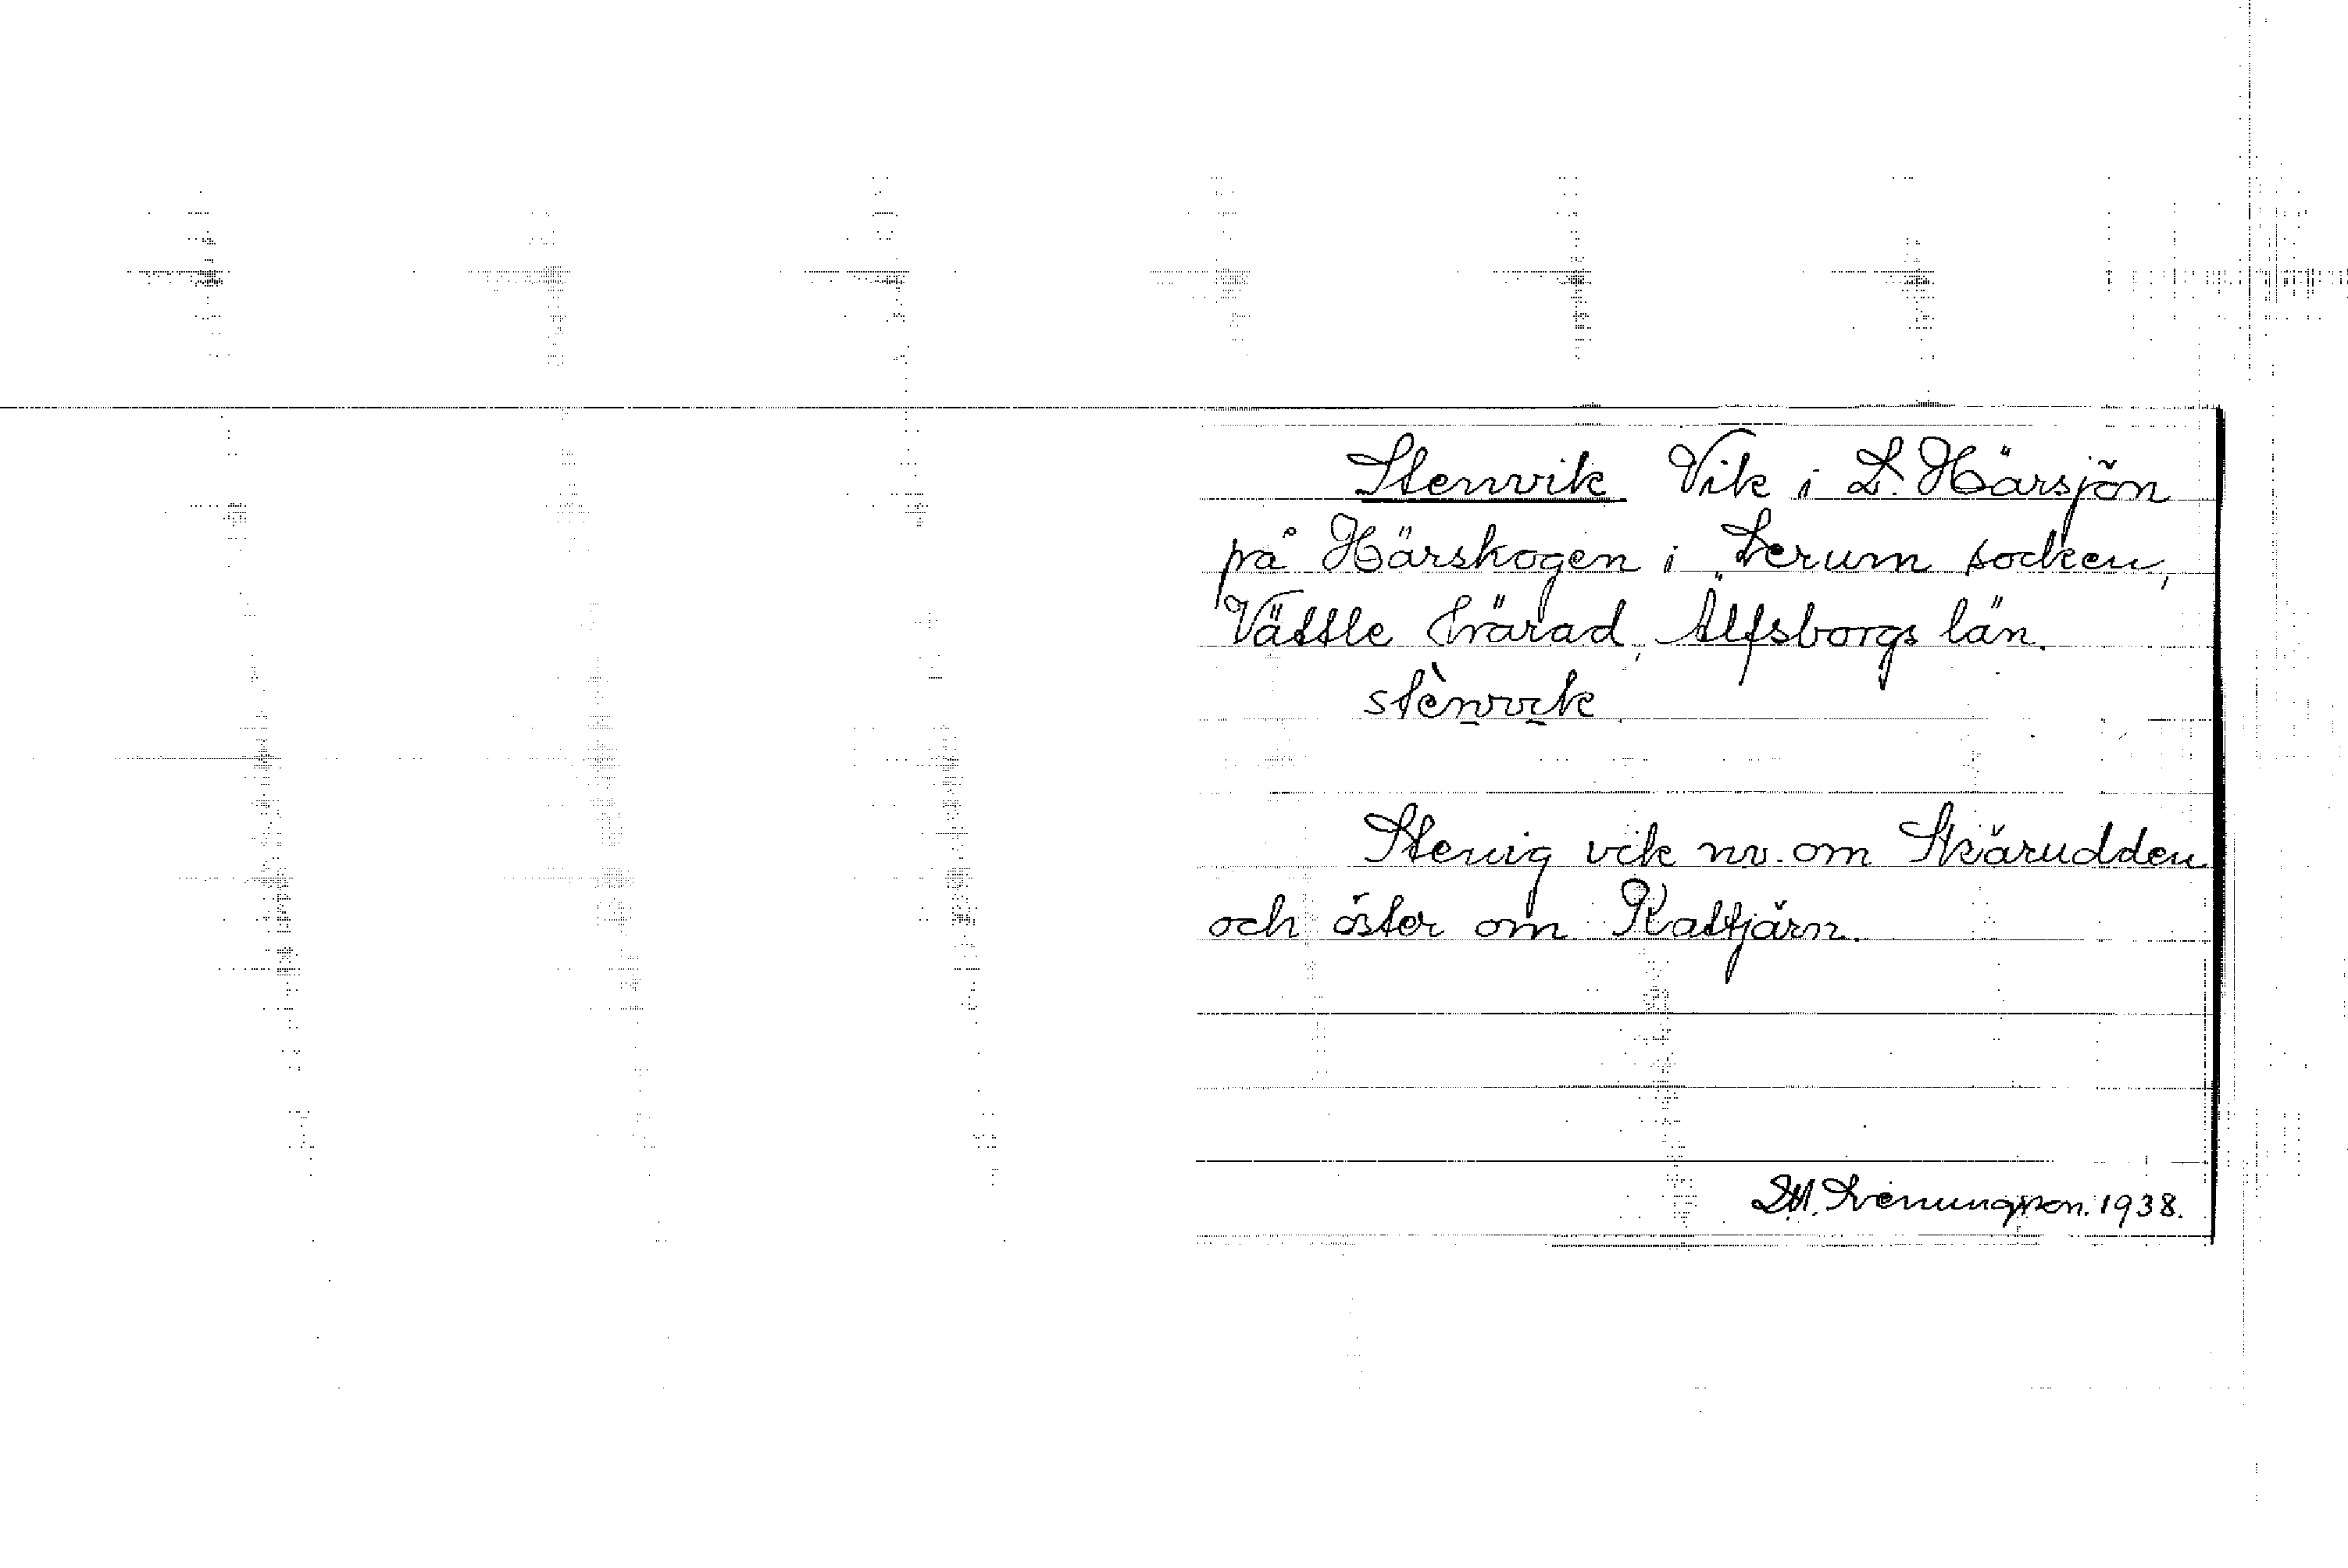 Stenvik Vik i L. Härsjön
på Härskogen i Lerum socken,
Vättle härad, Älfsborgs län.
stènvik
Stenig vik nv. om Skärudden
och öster om Kattjärn.
Svenungsson. 1938.